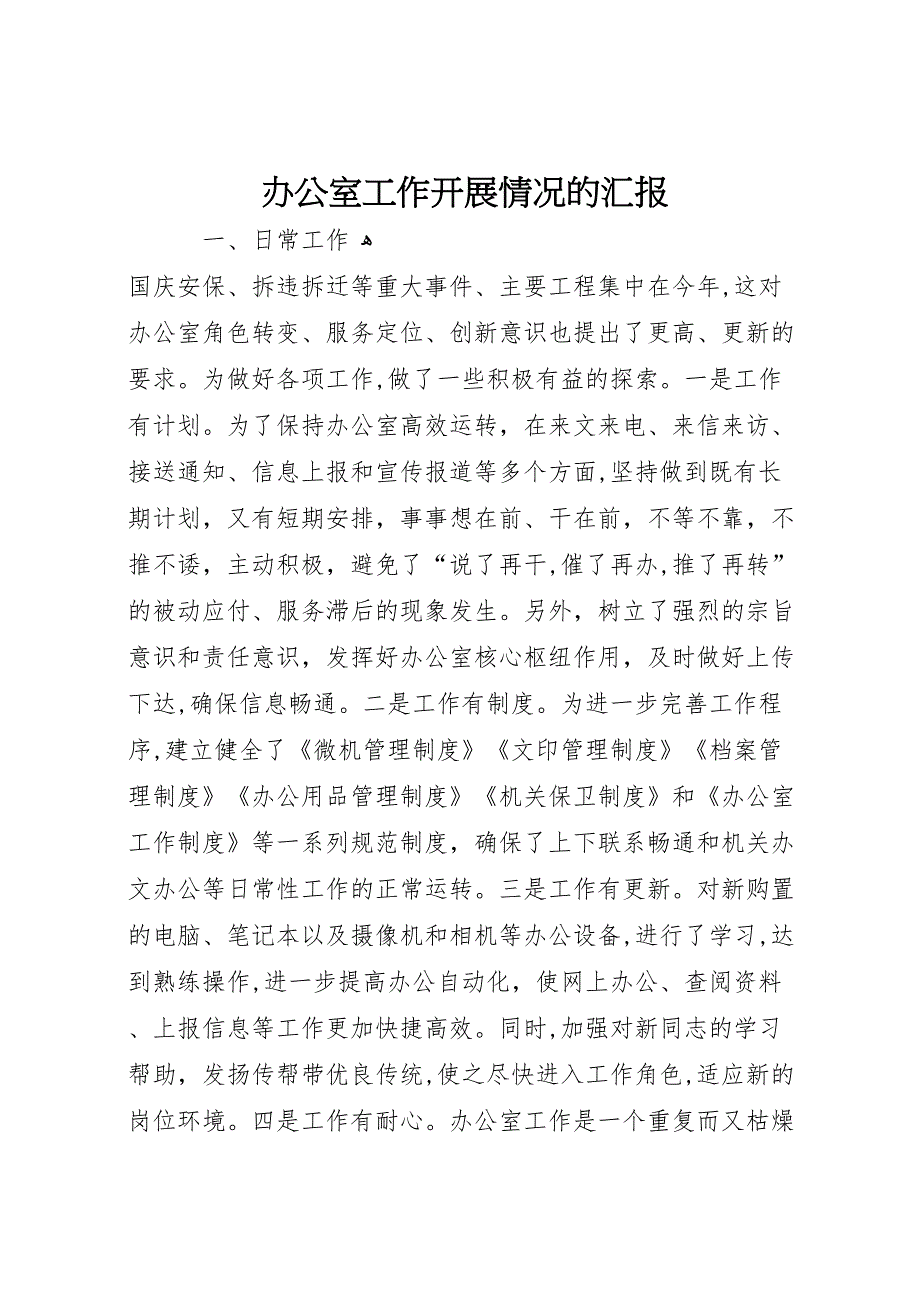 办公室工作开展情况的汇报
一、日常工作 ﻫ
国庆安保、拆违拆迁等重大事件、主要工程集中在今年,这对
办公室角色转变、服务定位、创新意识也提出了更高、更新的
要求。为做好各项工作,做了一些积极有益的探索。一是工作
有计划。为了保持办公室高效运转，在来文来电、来信来访、
接送通知、信息上报和宣传报道等多个方面,坚持做到既有长
期计划，又有短期安排，事事想在前、干在前，不等不靠，不
推不诿，主动积极，避免了“说了再干,催了再办,推了再转”
的被动应付、服务滞后的现象发生。另外，树立了强烈的宗旨
意识和责任意识，发挥好办公室核心枢纽作用，及时做好上传
下达,确保信息畅通。二是工作有制度。为进一步完善工作程
序,建立健全了《微机管理制度》《文印管理制度》《档案管
理制度》《办公用品管理制度》《机关保卫制度》和《办公室
工作制度》等一系列规范制度，确保了上下联系畅通和机关办
文办公等日常性工作的正常运转。三是工作有更新。对新购置
的电脑、笔记本以及摄像机和相机等办公设备,进行了学习,达
到熟练操作,进一步提高办公自动化，使网上办公、查阅资料
、上报信息等工作更加快捷高效。同时,加强对新同志的学习
帮助，发扬传帮带优良传统,使之尽快进入工作角色,适应新的
岗位环境。四是工作有耐心。办公室工作是一个重复而又枯燥